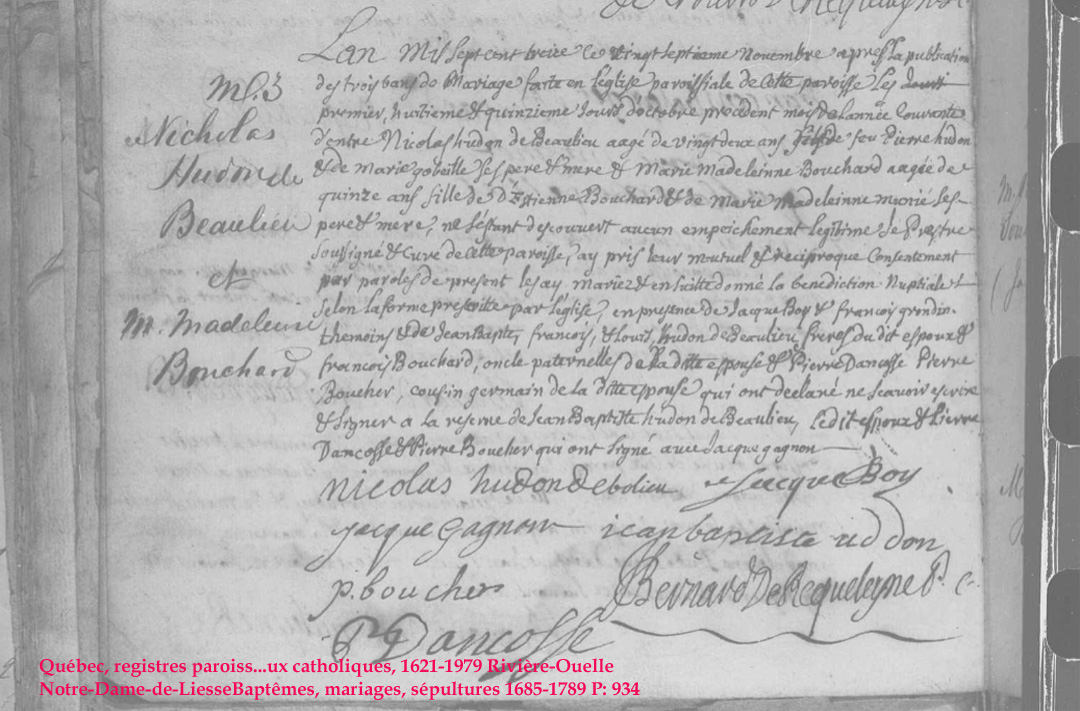 M.3
Nicholas
Hudon de
Beaulieu
et
M. Madeleine
Bouchard
Lan Mil sept cent treize le vingt septieme Novembre apres la publication
des trois bans de Mariage faite en l'église paroissiale de cette paroisse les
premier, huitieme & quinzieme Jours d'octobre precedent mois de Lannée courante
d'entre Nicolas hudon de Beaulieu aagé de vingt deux ans fils de feu Pierre hudon
& de Marie gobeille ses pere & mere & Marie Madeleinne Bouchard aagée de
quinze ans fille de Estienne Bouchard & de Marie Madeleinne meunié ses
pere & mere, ne s'estant descouvert aucun empeichement legitime Je Prestre
soussigné & Curé de Cette paroisse, ay pris leur mutuel & reciproque Consentement
par paroles de present les ay mariez & en suitte donné la benediction Nuptiale
selon la forme prescritte par l'église, en presence de Jacque Boy & francois grondin
themoins & de Jean Baptte, francois, & Louis, hudon de Beaulieu, freres du dit espoux &
francois Bouchard, oncle paternelles de la ditte espouse & Pierre Dancosse Pierre
Boucher, cousin germain de la ditte espouse qui ont declané ne scavoir escrire
& signer a la reserve de Jean Baptiste hudon de Beaulieu, Ledit espoux & Pierre
Dancosse & Pierre Boucher qui ont signé avec Jacque gagnon
nicolas hudon debolieu Jacque Boy
Jacque Gagnon jean baptiste uddon
p. boucher Bernard DeRequeleyne P.
P Dancosse
Québec, registres paroiss...ux catholiques, 1621-1979 Rivière-Ouelle
Notre-Dame-de-LiesseBaptêmes, mariages, sépultures 1685-1789 P: 934